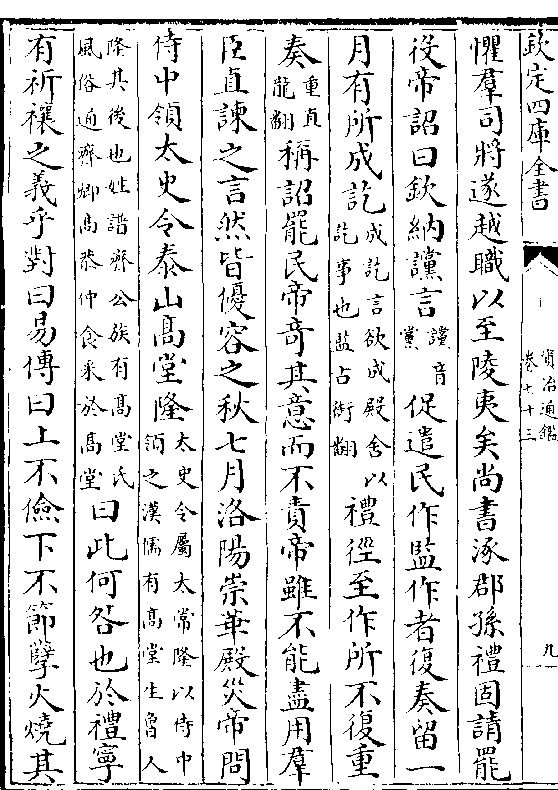 欽定四庫全書
資治通鑑
卷七十三
九
懼羣司將遂越職以至陵夷矣尚書涿郡孫禮固請罷
役帝詔曰欽納讜言讜音黨促遣民作監作者復奏留一
月有所成訖成訖言欲成殿舍以訖事也監古銜翻禮徑至作所不復重
奏重直龍翻稱詔罷民帝奇其意而不責帝雖不能盡用羣
臣直諫之言然皆優容之秋七月洛陽崇華殿災帝問
侍中領太史令泰山髙堂隆太史令屬太常隆以侍中領之漢儒有髙堂生魯人
隆其後也姓譜齊公族有髙堂氏風俗通齊卿髙恭仲食采於髙堂曰此何咎也於禮寧
有祈禳之義乎對曰易傳曰上不儉下不節孽火燒其